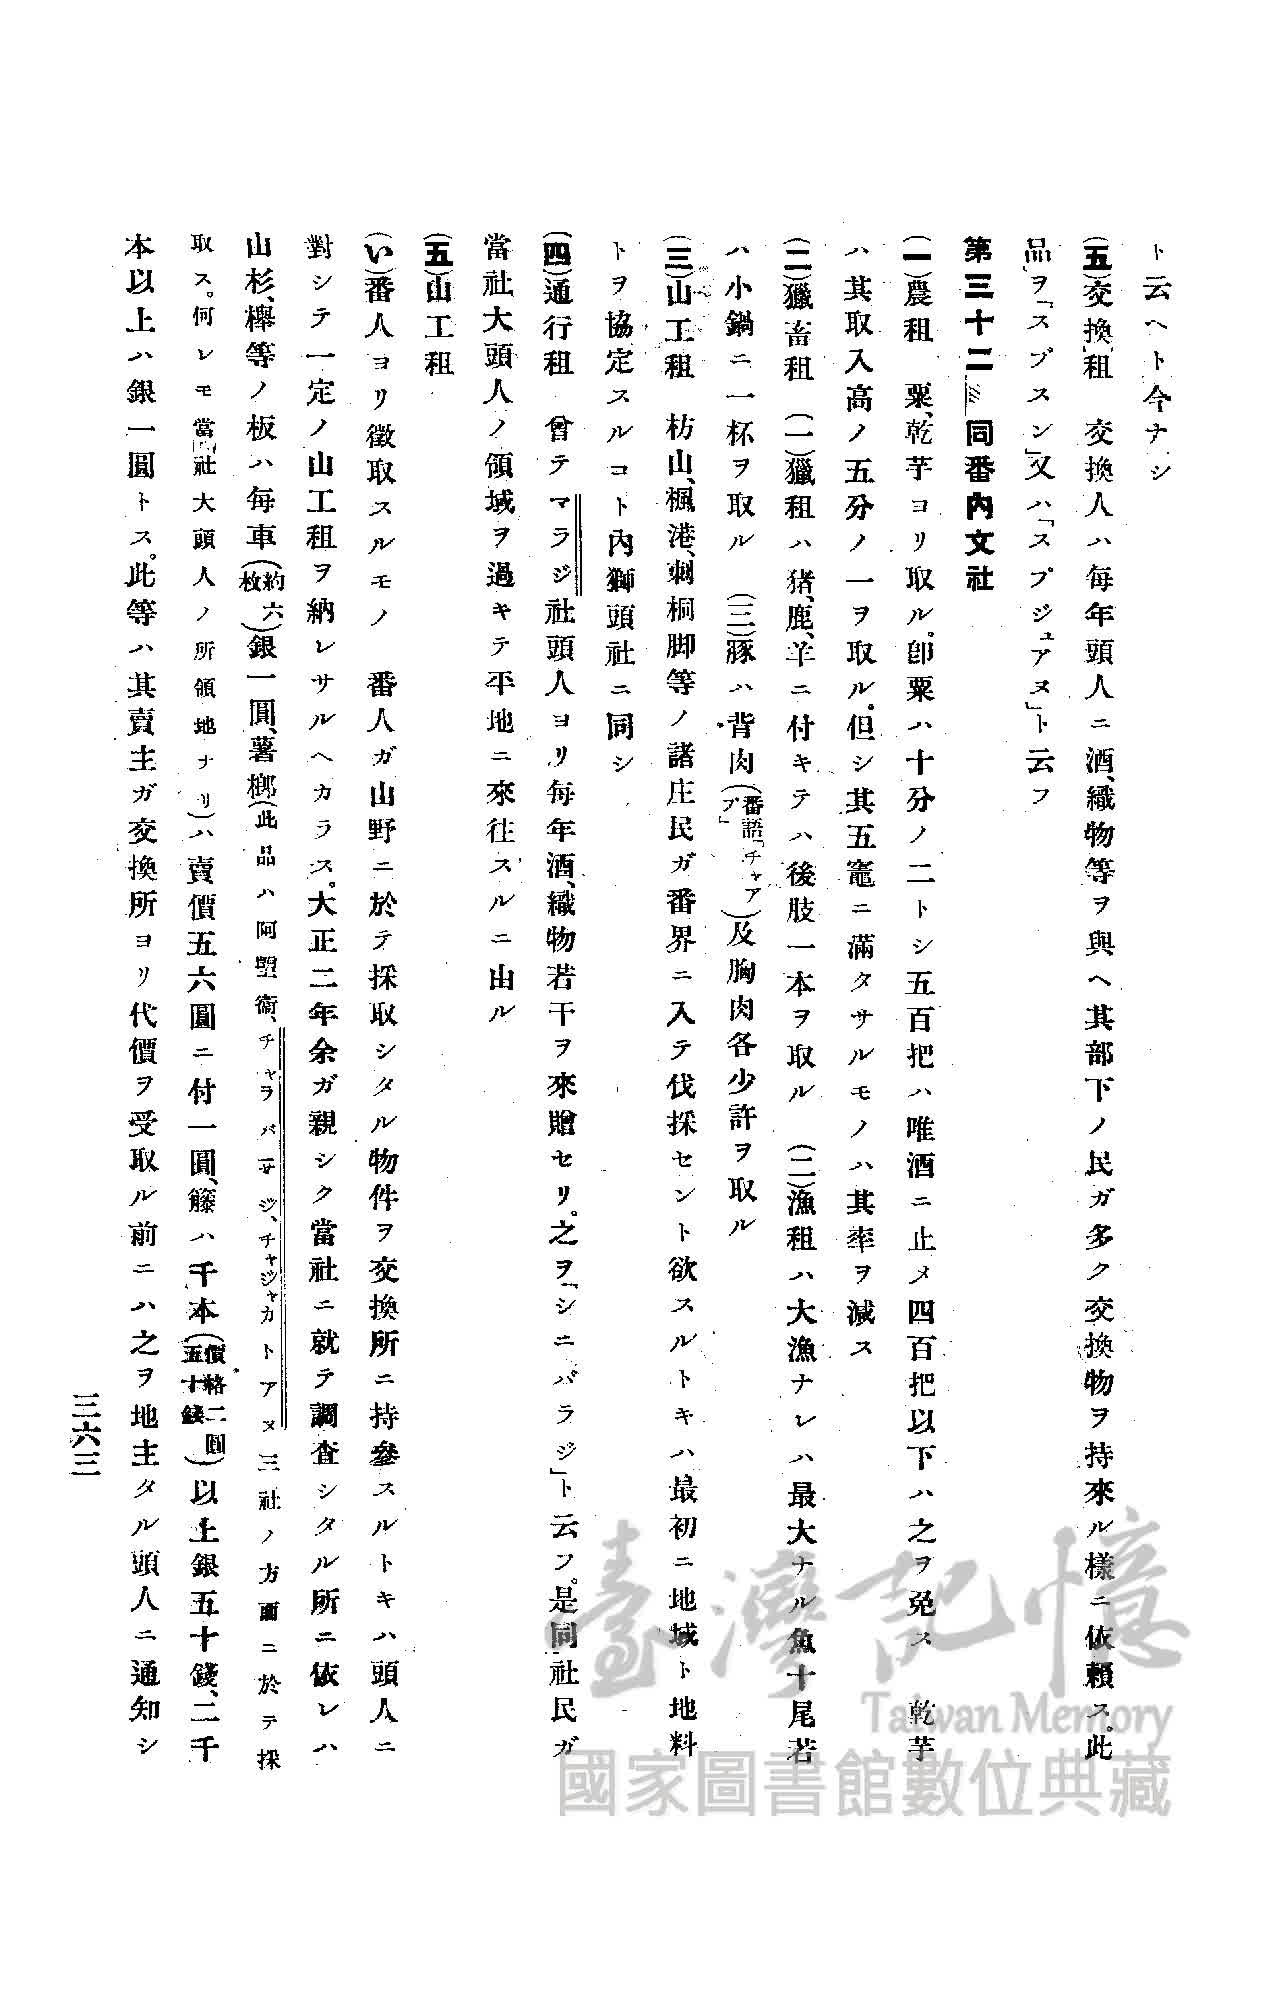 ト云ヘト今ナシ
(五)交換租　交換人ハ每年頭人ニ酒、織物等ヲ與ヘ其部下ノ民ガ多ク交換物ヲ持來ル樣ニ依賴ス。此
品ヲ「スプスン」又ハ「スプジュアヌ」ト云フ
第三十二　同番內文社
(一)農租　粟、乾芋ヨリ取ル。卽粟ハ十分ノ二トシ五百把ハ唯酒ニ止メ四百把以下ハ之ヲ免ス　乾芋
ハ其取入高ノ五分ノ一ヲ取ル。但シ其五竈ニ滿タサルモノハ其率ヲ減ス
(二)獵畜租　(一)獵租ハ猪、鹿、羊ニ付キテハ後肢一本ヲ取ル　(二)漁租ハ大漁ナレハ最大ナル魚十尾若
ハ小鍋ニ一杯ヲ取ル　(三)豚ハ背肉(番語「チャアア」)及胸肉各少許ヲ取ル
(三)山工租　枋山、楓港、刺桐脚等ノ諸庄民ガ番界ニ入テ伐採セント欲スルトキハ最初ニ地域ト地料
トヲ協定スルコト內獅頭社ニ同シ
(四)通行租　曾テマラジ社頭人ヨリ每年酒、織物若干ヲ來贈セリ。之ヲ「シニバラジ」ト云フ。是同社民ガ
當社大頭人ノ領域ヲ過キテ平地ニ來往スルニ由ル
(五)山工租
(い)番人ヨリ徵取スルモノ　番人ガ山野ニ於テ採取シタル物件ヲ交換所ニ持參スルトキハ頭人ニ
對シテ一定ノ山工租ヲ納レサルヘカラス。大正二年余ガ親シク當社ニ就テ調査シタル所ニ依レハ
山杉、櫸等ノ板ハ每車(約六枚)銀一圓、薯榔(此品ハ阿塱衞、チャラバサジ、チャジャカトアヌ三社ノ方面ニ於テ採
取ス。何レモ當社大頭人ノ所領地ナリ)ハ賣價五六圓ニ付一圓、籐ハ千本(價格二圓五十錢)以上銀五十錢、二千
本以上ハ銀一圓トス。此等ハ其賣主ガ交換所ヨリ代價ヲ受取ル前ニハ之ヲ地主タル頭人ニ通知シ
三六三
臺灣記憶
Taiwan Memory
國家圖書館數位典藏